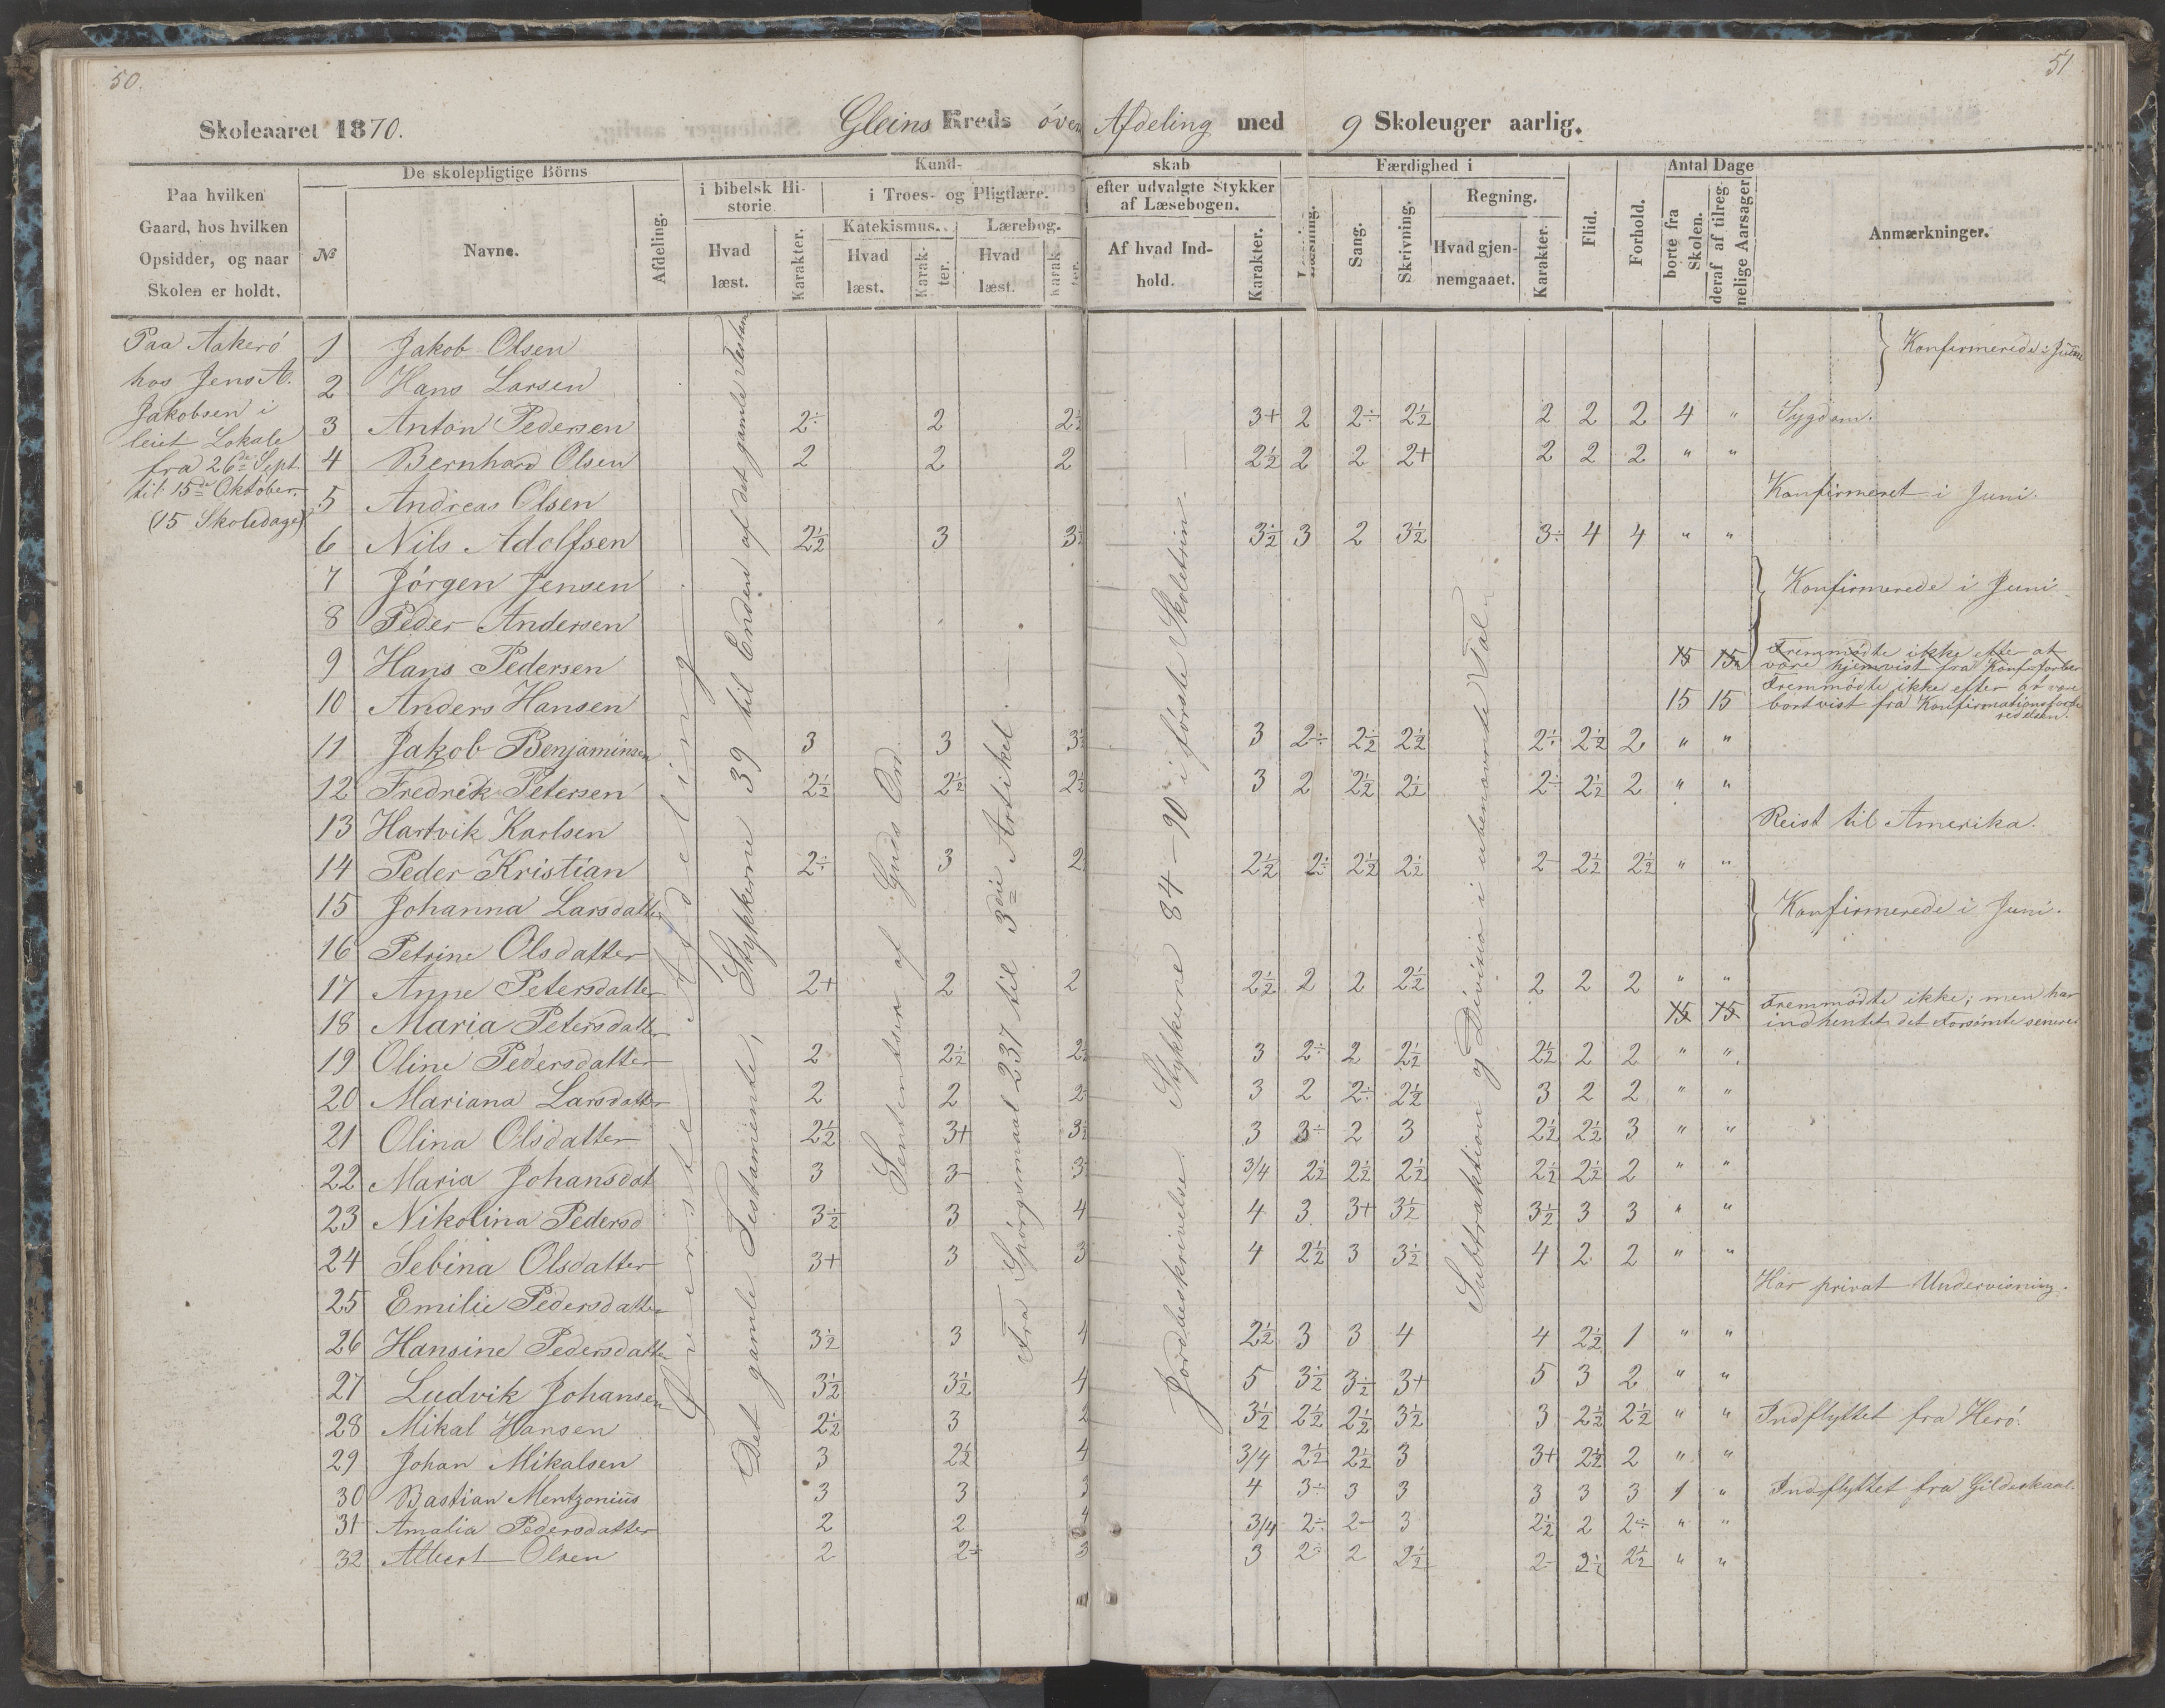 50.
51
Skoleaaret 1870. Gleins Kreds över Afdeling med 9 Skoleuger aarlig.
Paa hvilken
Gaard, hos hvilken
Opsidder, og naar
Skolen er holdt.
De skolepligtige Börns
№
Navne.
Afdeling.
Kund-
i bibelsk Hi-
storie
Hvad
læst.
Karakter.
i Troes- og Pligtlære.
Katekismus.
Hvad
læst.
Karak-
ter.
Lærebog.
Hvad
læst.
Karak
ter.
skab
efter udvalgte Stykker
af Læsebogen.
Af hvad Ind-
hold.
Karakter.
Færdighed i
Læsning.
Sang.
Skrivning.
Regning.
Hvad gjen-
nemgaaet.
Karakter.
Flid.
Forhold.
Antal Dage
borte fra
Skolen.
deraf af tilreg-
nelige Aarsager
Anmærkninger.
Paa Aakerö
hos Jens A.
Jakobsen i
leiet Lokale
fra 26de Sept.
til 15de Oktober.
(15 Skoledage)
Överste Afdeling
Det gamle Testamente, Stykkerne 39 til Enden af det gamle Testam
Sententser af Guds Ord
Fra Spörgsmaal 237 til 3die Artikel.
Jordbeskrivelse. Stykkerne 84-90 i förste Skoletrin.
Subtraktion og Division i ubenævnte Tal
1 Jakob Olsen } Konfirmerede i Juni
2 Hans Larsen
3 Anton Pedersen 2÷ 2 2½ 3+ 2 2÷ 2½ 2 2 2 4 " Sygdom.
4 Bernhard Olsen 2 2 2 2½ 2 2 2+ 2 2 2 " "
5 Andreas Olsen Konfirmeret i Juni.
6 Nils Adolfsen 2½ 3 3½ 3½ 3 2 3½ 3÷ 4 4 " "
7 Jörgen Jensen } Konfirmerede i Juni
8 Peder Andersen
9 Hans Pedersen 15 15 Fremmödte ikke efter at
være hjemvist fra Konf.forber
10 Anders Hansen 15 15 Fremmödte ikke efter at være
bortvist fra Konfirmationsforbe
redelsen.
11 Jakob Benjaminsen 3 3 3½ 3 2÷ 2½ 2½ 2÷ 2½ 2 " "
12 Fredrik Petersen 2½ 2½ 2½ 3 2 2½ 2½ 2÷ 2½ 2 " "
13 Hartvik Karlsen Reist til Amerika.
14 Peder Kristian 2÷ 3 2 2½ 2÷ 2½ 2½ 2- 2½ 2½ " "
15 Johanna Larsdatter } Konfirmerede i Juni.
16 Petrine Olsdatter
17 Anne Petersdatter 2+ 2 2 2½ 2 2 2½ 2 2 2 " "
18 Maria Petersdatter 15 15 Fremmödte ikke; men har
indhentet det Forsömte senere
19 Oline Pedersdatter 2 2½ 2½ 3 2÷ 2 2½ 2½ 2 2 " "
20 Mariana Larsdatter 2 2 2 3 2 2÷ 2½ 3 2 2 " "
21 Olina Olsdatter 2½ 3+ 3½ 3 3÷ 2 3 2½ 2½ 3 " "
22 Maria Johansdat 3 3- 3 3/4 2½ 2½ 2½ 2½ 2½ 2 " "
23 Nikolina Pedersd 3½ 3 4 4 3 3+ 3½ 3½ 3 3 " "
24 Sebina Olsdatter 3+ 3 3 4 2½ 3 3½ 4 2 2 " "
25 Emilie Pedersdatter Har privat Undervisning.
26 Hansine Pedersdatter 3½ 3 4 2½ 3 3 4 4 2½ 1 " "
27 Ludvik Johansen 3½ 3½ 4 5 3½ 3½ 3+ 5 3 2 " "
28 Mikal Hansen 2½ 3 2 3½ 2½ 2½ 3½ 3 2½ 2½ " " Indflyttet fra Herö.
29 Johan Mikalsen 3 2½ 4 3/4 2½ 2½ 3 3+ 2½ 2 " "
30 Bastian Mentzoniüs 3 3 3 4 3÷ 3 3 3 3 3 1 " Indflyttet fra Gildeskaal.
31 Amalia Pedersdatter 2 2 3/4 2÷ 2- 3 2½ 2 2÷ " "
32 Albert Olsen 2 2÷ 3 3 2÷ 2 2½ 2- 2½ 2½ " "